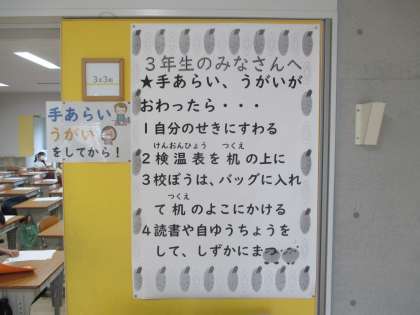 3年3組
手あらい
うがい
をしてから！
3年生のみなさんへ
★手あらい、うがいが
おわったら・・・
1自分のせきにすわる
けんおんひょう つくえ
2検温表を机の上に
3校ぼうは、バッグに入れ
つくえ
て机のよこにかける
4読書や自ゆうちょうを
して、しずかにまつ・・